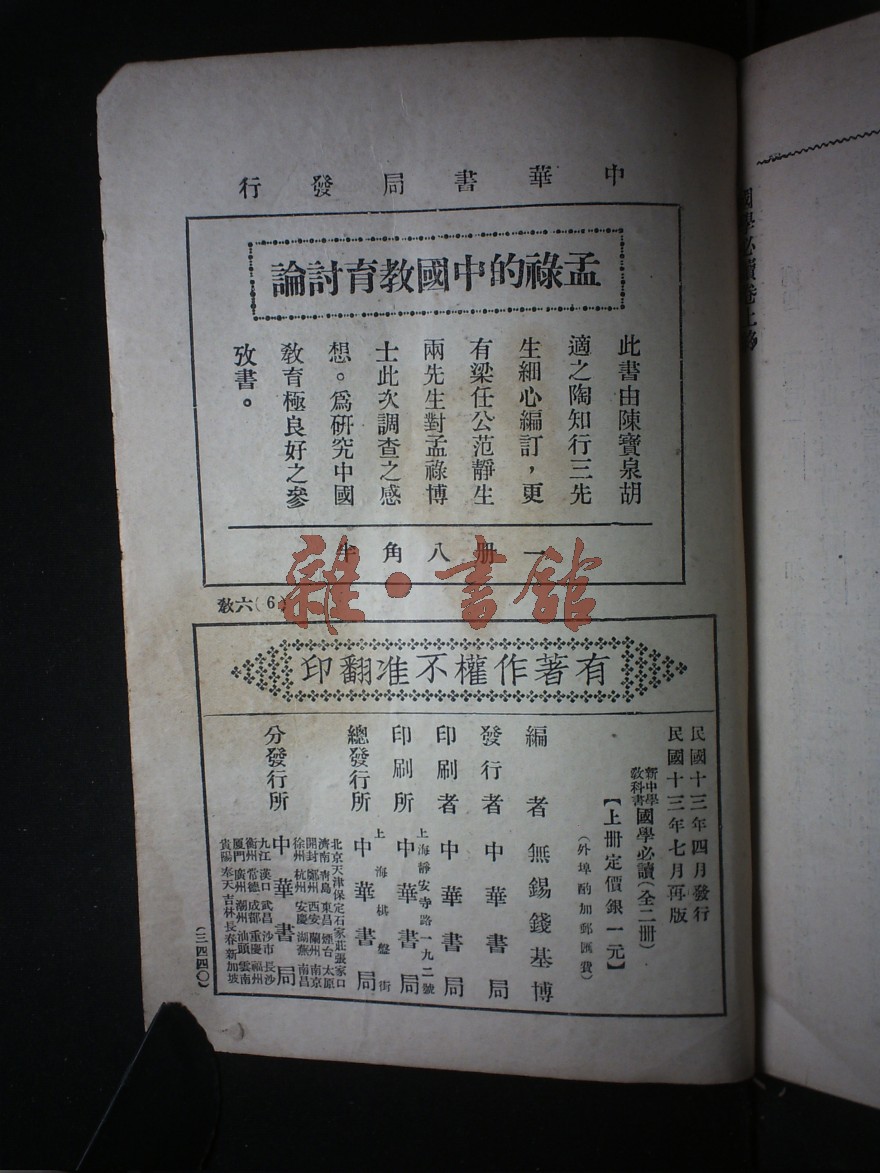 中華書局發行
孟祿的中國教育討論
此書由陳寶泉胡
適之陶知行三先
生細心編訂，更
有梁任公范靜生
兩先生對孟祿博
士此次調查之感
想。爲研究中國
教育極良好之參
攷書。
一册八角半
教六(6)
雜·書館
有著作權不准翻印
民國十三年四月發行
民國十三年七月再版
新中學教科書國學必讀(全二册)
【上册定價銀一元】
(外埠酌加郵匯費)
編者 無錫錢基博
發行者 中華書局
印刷者 中華書局
上海靜安寺路一九二號
印刷所 中華書局
上海棋盤街
總發行所 中華書局
北京天津保定石家莊張家口
濟南青島東昌煙台太原
開封鄭州西安蘭州南京
徐州杭州安慶蕪湖南昌
分發行所 中華書局
九江漢口武昌沙市長沙
衡州常德成都重慶福州
厦門廣州潮州汕頭雲南
貴陽奉天吉林長春新加坡
(三四四〇)
國學必讀卷上終